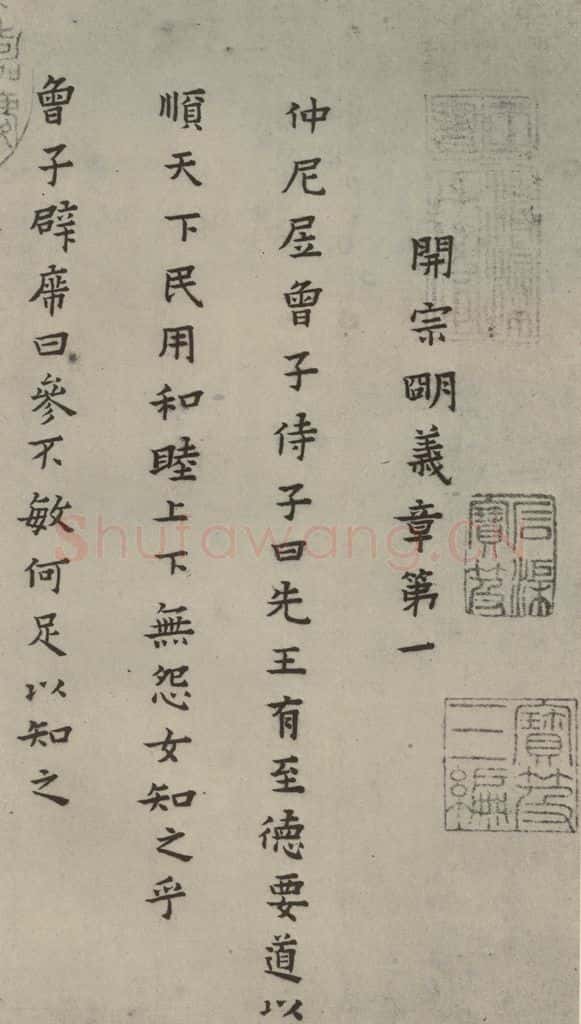 開宗朙義章第一
仲尼居曾子侍子曰先王有至德要道以
順天下民用和睦上下無怨女知之乎
曾子辟席曰參不敏何足以知之
石渠寶笈
寶笈三編
Shufawang.CN